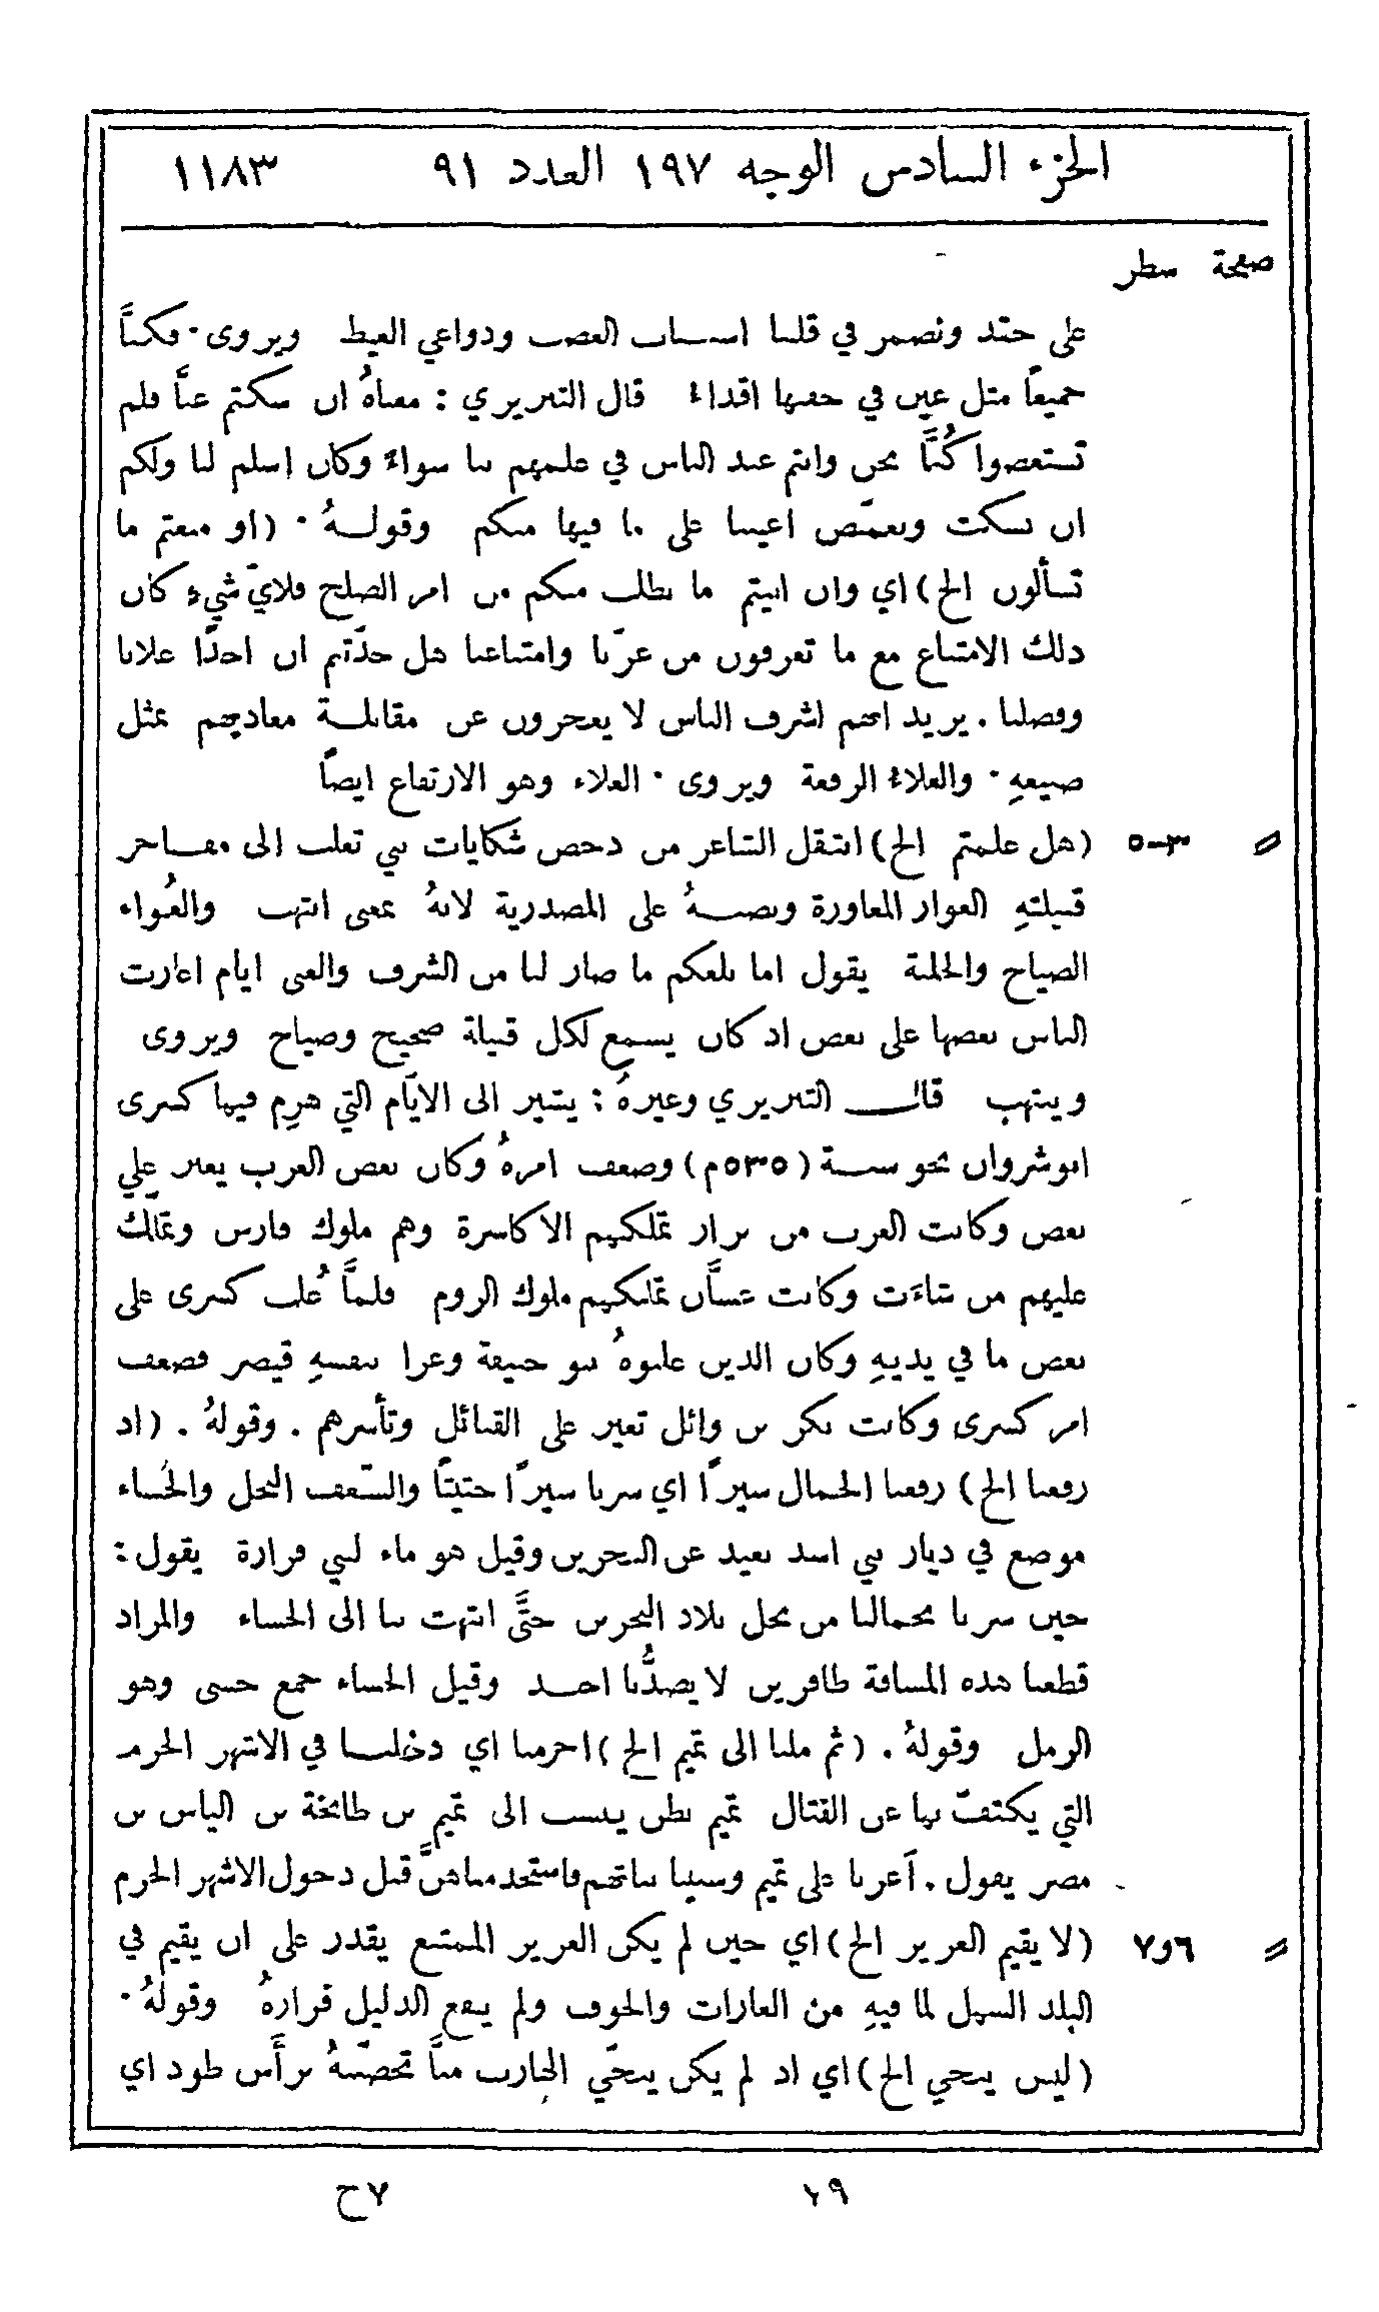 الجزء السادس الوجه ١٩٧ العدد ٩١ ١١٨٣
صفحة سطر
على حقد ونضمر في قلبنا اسباب الغضب ودواعي الغيظ ويروى· فكنَّا
جميعًا مثل عين في جفنها اقذاءُ قال التبريزي : معناهُ ان سكتم عنَّا فلم
تستغضبوا كُنَّا نحن وانتم عند الناس في علمهم بنا سواءً وكان اسلم لنا ولكم
ان نسكت ونغمّض اعيننا على ما فيها منكم وقولــهُ · (او منعتم ما
تسألون الخ) اي وان ابيتم ما نطلب منكم من امر الصلح فلايّ شيءٍ كان
ذلك الامتناع مع ما تعرفون من عزّنا وامتناعنا هل حدّثتم ان احدًا علانا
وفضلنا . يريد انهم اشرف الناس لا يعجزون عن مقابلــة معاديهم بمثل
صنيعهِ · والعلاءُ الرفعة ويروى · الغلاء وهو الارتفاع ايضًا
〃 ٣-٥ (هل علمتم الخ) انتقل الشاعر من دحض شكايات بني تغلب الى مفــاخر
قبيلتهِ الغوار المغاورة ونصبــهُ على المصدرية لانهُ بمعنى انتهب والعُواء
الصياح والجلبة يقول اما بلغكم ما صار لنا من الشرف والغنى ايام اغارت
الناس بعضها على بعض اذ كان يسمع لكل قبيلة ضجيج وصياح ويروى
وينتهب قالــــ التبريزي وغيرهُ : يشير الى الايَّام التي هُزِم فيها كسرى
انوشروان نحو سنــة (٥٣٥م) وضعف امرهُ وكان بعض العرب يغير على
بعض وكانت العرب من نزار تملكهم الاكاسرة وهم ملوك فارس وتملّك
عليهم من شاءَت وكانت غسَّان تملكهم ملوك الروم فلمَّا غُلب كسرى على
بعض ما في يديهِ وكان الذين غلبوهُ بنو حنيفة وغزا بنفسهِ قيصر فضعف
امر كسرى وكانت بكر بن وائل تغير على القبائل وتأسرهم . وقولهُ . (اذ
رفعنا الخ) رفعنا الجمال سيرًا اي سرنا سيرًا حثيثًا والسَّعف النخل والحُساء
موضع في ديار بني اسد بعيد عن البحرين وقيل هو ماء لبني فزارة يقول :
حين سرنا بجمالنا من نخل بلاد البحرين حتَّى انتهت بنا الى الحساء والمراد
قطعنا هذه المسافة ظافرين لا يصدُّنا احــد وقيل الحساء جمع حسى وهو
الرمل وقولهُ . (ثم ملنا الى تميم الخ) احرمنا اي دخلنــا في الاشهر الحرم
التي يكتفّ بها عن القتال تميم بطن ينسب الى تميم بن طابخة بن الياس بن
مضر يقول . أغرنا على تميم وسبينا بناتهم فاستخدمناهنَّ قبل دخول الاشهر الحرم
〃 ٦و٧ (لا يقيم العزيز الخ) اي حين لم يكن العزيز الممتنع يقدر على ان يقيم في
البلد السهل لما فيهِ من الغارات والخوف ولم ينفع الذليل فرارهُ وقولهُ ·
(ليس ينجي الخ) اي اذ لم يكن ينجّي الهارب منَّا تحصّنهُ برأس طود اي
٧٩ ٧ح